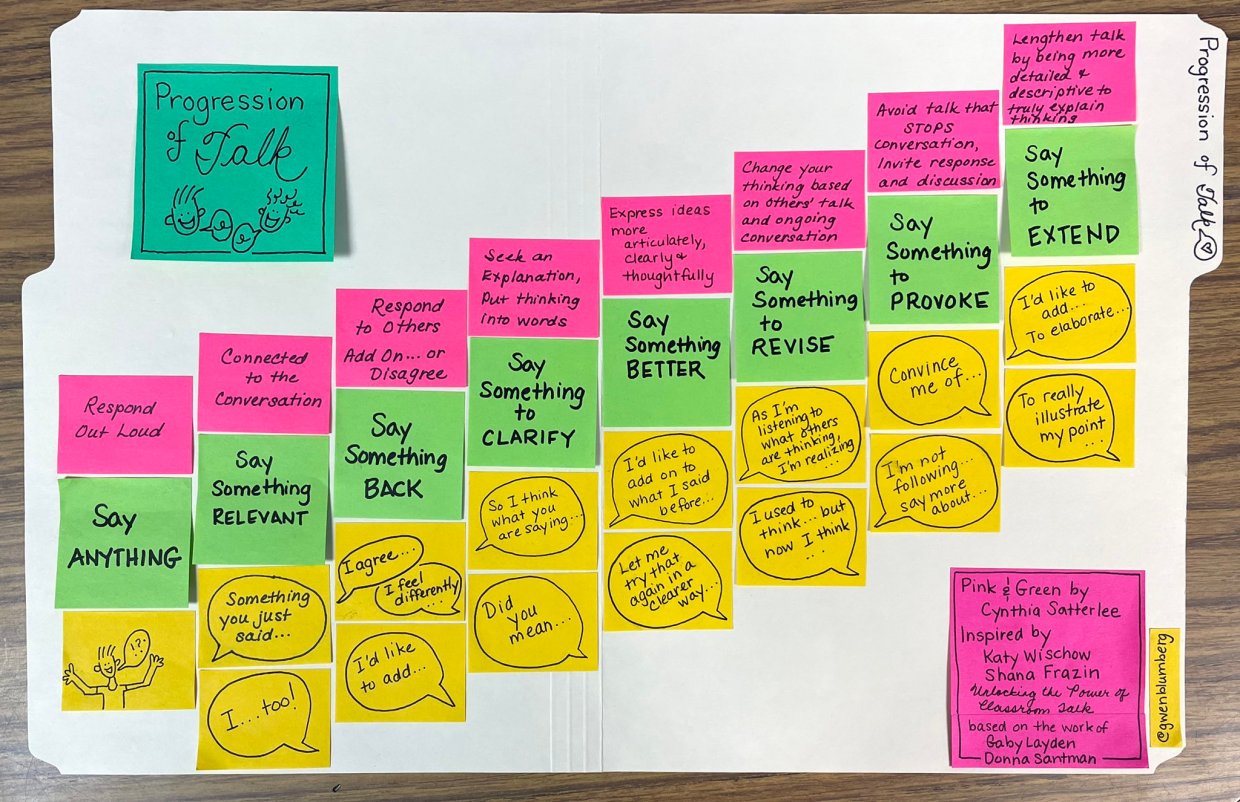 Progression
of Talk
Respond
Out Loud
Say
ANYTHING
!?.
Connected
to the
Conversation
Say
Something
RELEVANT
Something
you just
said...
I....too!
Respond
to Others
Add On... or
Disagree
Say
Something
BACK
I agree...
I feel
differently
...
I'd like
to add...
Seek an
Explanation,
Put thinking
into words
Say
Something
to
CLARIFY
So I think
what you
are saying...
Did
you
mean...
Express ideas
more
articulately,
clearly &
thoughtfully
Say
Something
BETTER
I'd like to
add on to
what I said
before...
Let me
try that
again in a
clearer
way...
Change your
thinking based
on others' talk
and ongoing
conversation
Say
Something
to
REVISE
As I'm
listening to
what others
are thinking,
I'm realizing
...
I used to
think... but
now I think
...
Avoid talk that
STOPS
conversation,
Invite response
and discussion
Say
Something
to
PROVOKE
Convince
me of...
I'm not
following...
say more
about...
Lengthen talk
by being more
detailed &
descriptive to
truly explain
thinking
Say
Something
to
EXTEND
I'd like to
add...
To elaborate...
To really
illustrate
my point
...
Progression of Talk
Pink & Green by
Cynthia Satterlee
Inspired by
Katy Wischow
Shana Frazin
Unlocking the Power of
Classroom Talk
based on the work of
Gaby Layden
Donna Santman
@gwenblumberg